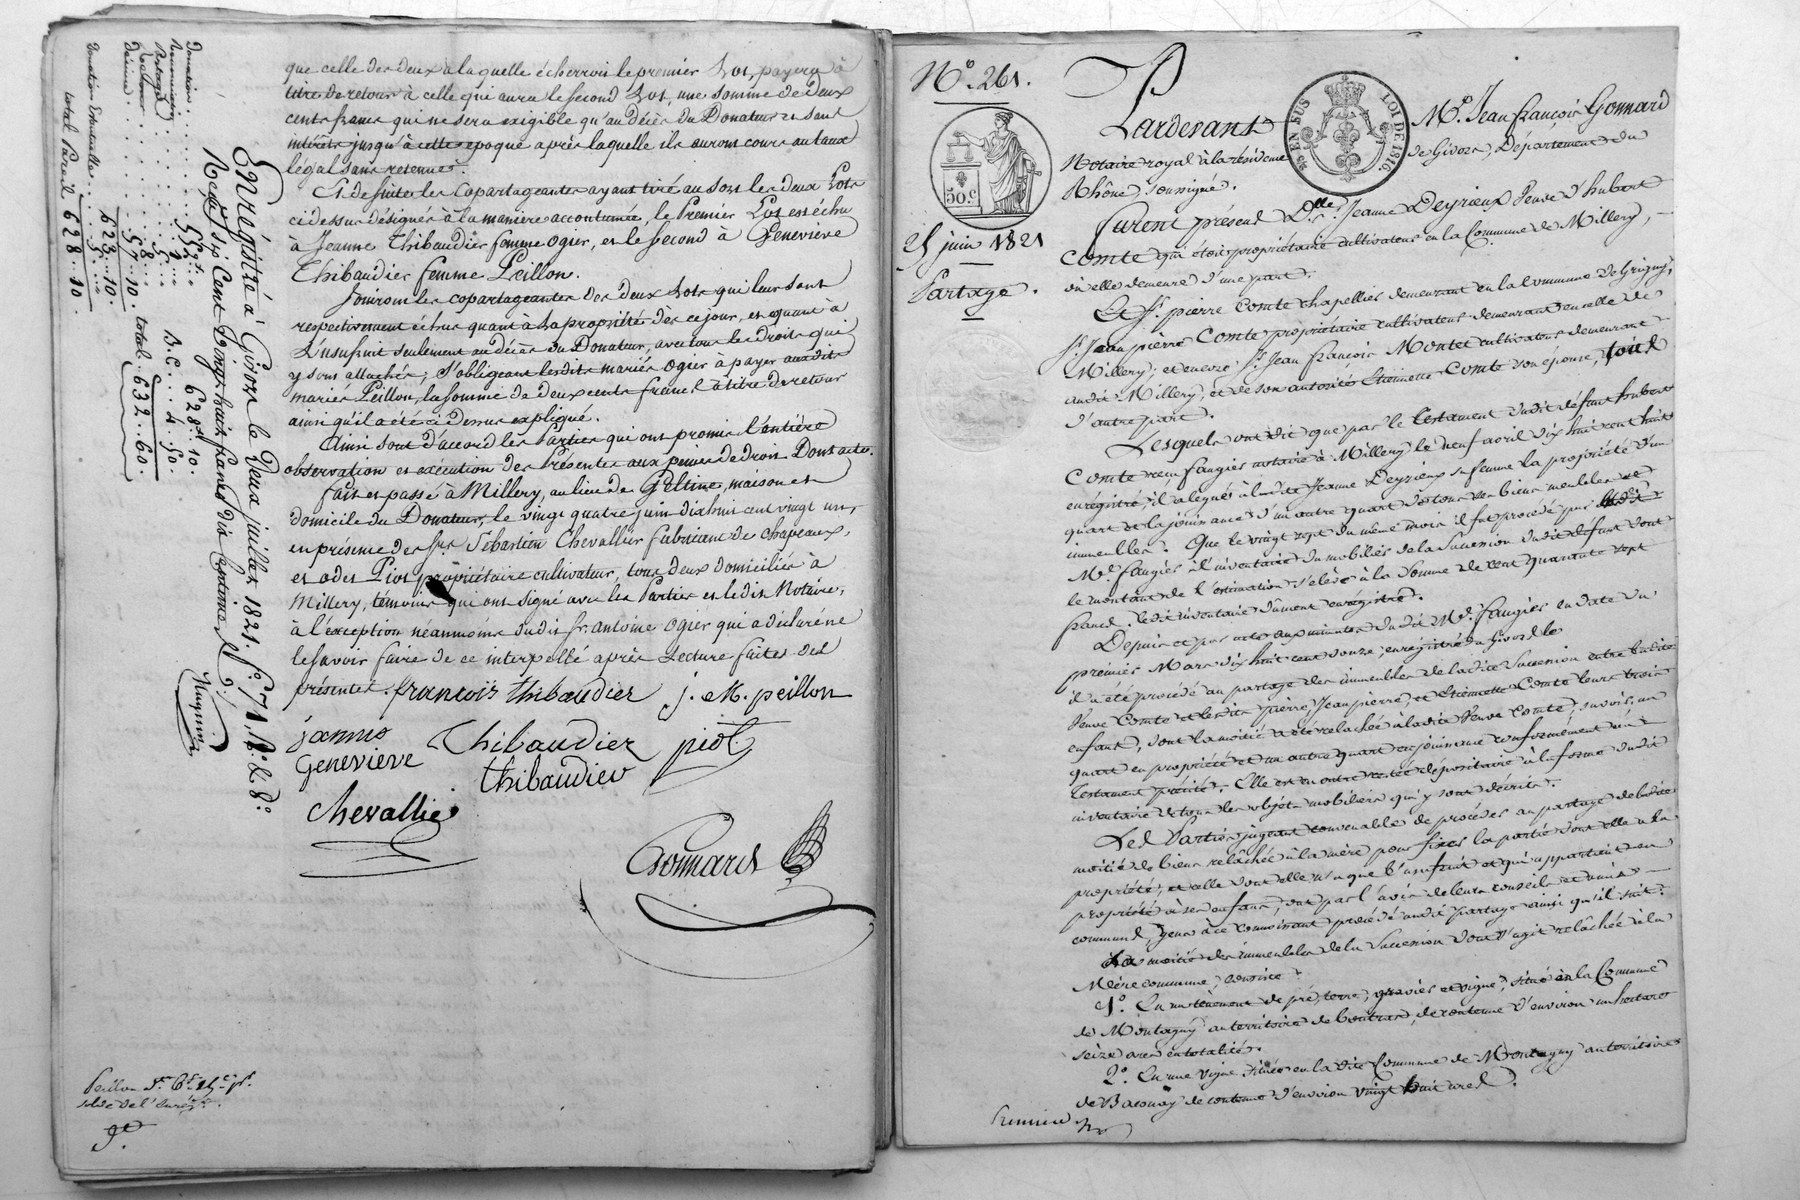 que celle des deux à laquelle écherroit le premier Lot, payera à
titre de retour à celle qui aura le second Lot, une somme de deux
cents francs qui ne sera exigible qu'au décès du Donateur et sans
intérêts jusqu'à cette époque après laquelle ils auront cours au taux
légal sans retenue.
Et de suite les Copartageantes ayant tiré au sort les deux Lots
ci dessus désignés à la manière accoutumée, le Premier Lot est échu
à Jeanne Thibaudier femme Ogier, et le second à Geneviève
Thibaudier femme Peillon.
Jouiront les copartageantes des deux Lots qui leur sont
respectivement échus quant à la propriété dès ce jour, et quant à
l'usufruit seulement au décès du Donateur, avec tous les droits qui
y sont attachés; s'obligeant lesdits mariés Ogier à payer auxdits
mariés Peillon, la somme de deux cents francs à titre de retour
ainsi qu'il a été ci dessus expliqué.
Ainsi sont d'accord les Parties qui ont promis l'entière
observation et exécution des Présentes aux peines de droit Dont acte.
fait et passé à Millery, au lieu de Geltine, maison et
domicile du Donateur, le vingt quatre juin dix huit cent vingt un,
en présence des Srs Sébastien Chevallier fabricant de chapeaux,
et odet Piot propriétaire cultivateur, tous deux domiciliés à
Millery, témoins qui ont signé avec les Parties et ledit Notaire,
à l'exception néanmoins dudit Sr. antoine Ogier qui a déclaré ne
le savoir faire de ce interpellé après Lecture faite des
présentes. françois thibaudier j. M. peillon
jannes Thibaudier piot
Geneviève thibaudier
Chevallie
Gonnard
Enregistré à Givors le Deux juillet 1821. fo. 71, Ro. & So.
Reçu six Cent Vingt huit francs dix Centimes
Donation
Partage
Décime
5..
57..10.
total. 632..60.
628..10.
B.C... 4..50.
623..10.
total Pareil 628..10.
Peillon
No. 261.
50.C
25 juin 1821
Partage.
EN SUS
LOI DE 1816.
Pardevant Me. Jean François Gonnard
Notaire royal à la résidence de Givors, Département du
Rhône, soussigné.
furent présents Dlle. Jeanne Deyrieux Veuve d'hubert
Comte qui étoit propriétaire cultivateur en la Commune de Millery,
où elle demeure d'une part.
Et Sr. pierre Comte chapellier demeurant en la commune de Grigny,
Sr. Jean pierre Comte propriétaire cultivateur demeurant en celle de
Millery; et encore Sr. Jean François Montet cultivateur demeurant
audit Millery, et de son autorité Etiennette Comte son épouse, tous
d'autre part.
Lesquels ont dit que par le testament dudit défunt hubert
Comte reçu faugier notaire à Millery le neuf avril dix huit cent huit
enregistré, il a légué à ladite Jeanne Deyrieux sa femme la propriété d'un
quart et la jouissance d'un autre quart de tous ses biens meubles et
immeubles. Que le vingt sept du même mois il fut procédé par ledit
Me. faugier à l'inventaire du mobilier de la Succession dudit défunt dont
le montant de l'estimation s'élève à la somme de cent quarante sept
francs. ledit inventaire dûment enregistré.
Depuis et par acte aux minutes dudit Me. faugier en date du
premier Mars dix huit cent douze, enregistré à Givors le
il a été procédé au partage des immeubles de ladite Succession entre ladite
Veuve Comte et lesdits pierre, Jean pierre, et Etiennette Comte leurs trois
enfants, dont la moitié a été relachée à ladite Veuve Comte, savoir, un
quart en propriété et un autre quart en jouissance conformément au
testament précité. Elle est en outre restée dépositaire à la forme dudit
inventaire de tous les objets mobiliers qui y sont décrits.
Les Parties jugeant convenable de procéder au partage de ladite
moitié de biens relachée à la mère pour fixer la partie dont elle a la
propriété, et celle dont elle n'a que l'usufruit et qui appartient en
propriété à ses enfans, ont par l'avis de leurs conseils et amis
communs, gens à ce connoissant procédé audit partage ainsi qu'il suit.
La moitié des immeubles de la Succession dont s'agit relachée à la
Mère commune, consiste:
1o. En un tènement de pré, terre, gravier et vigne, situé en la Commune
de Montagny au territoire de boutras, de contenue d'environ un hectare
seize ares en totalité.
2o. En une vigne située en la dite Commune de Montagny au territoire
de Baconay de contenue d'environ vingt huit ares.